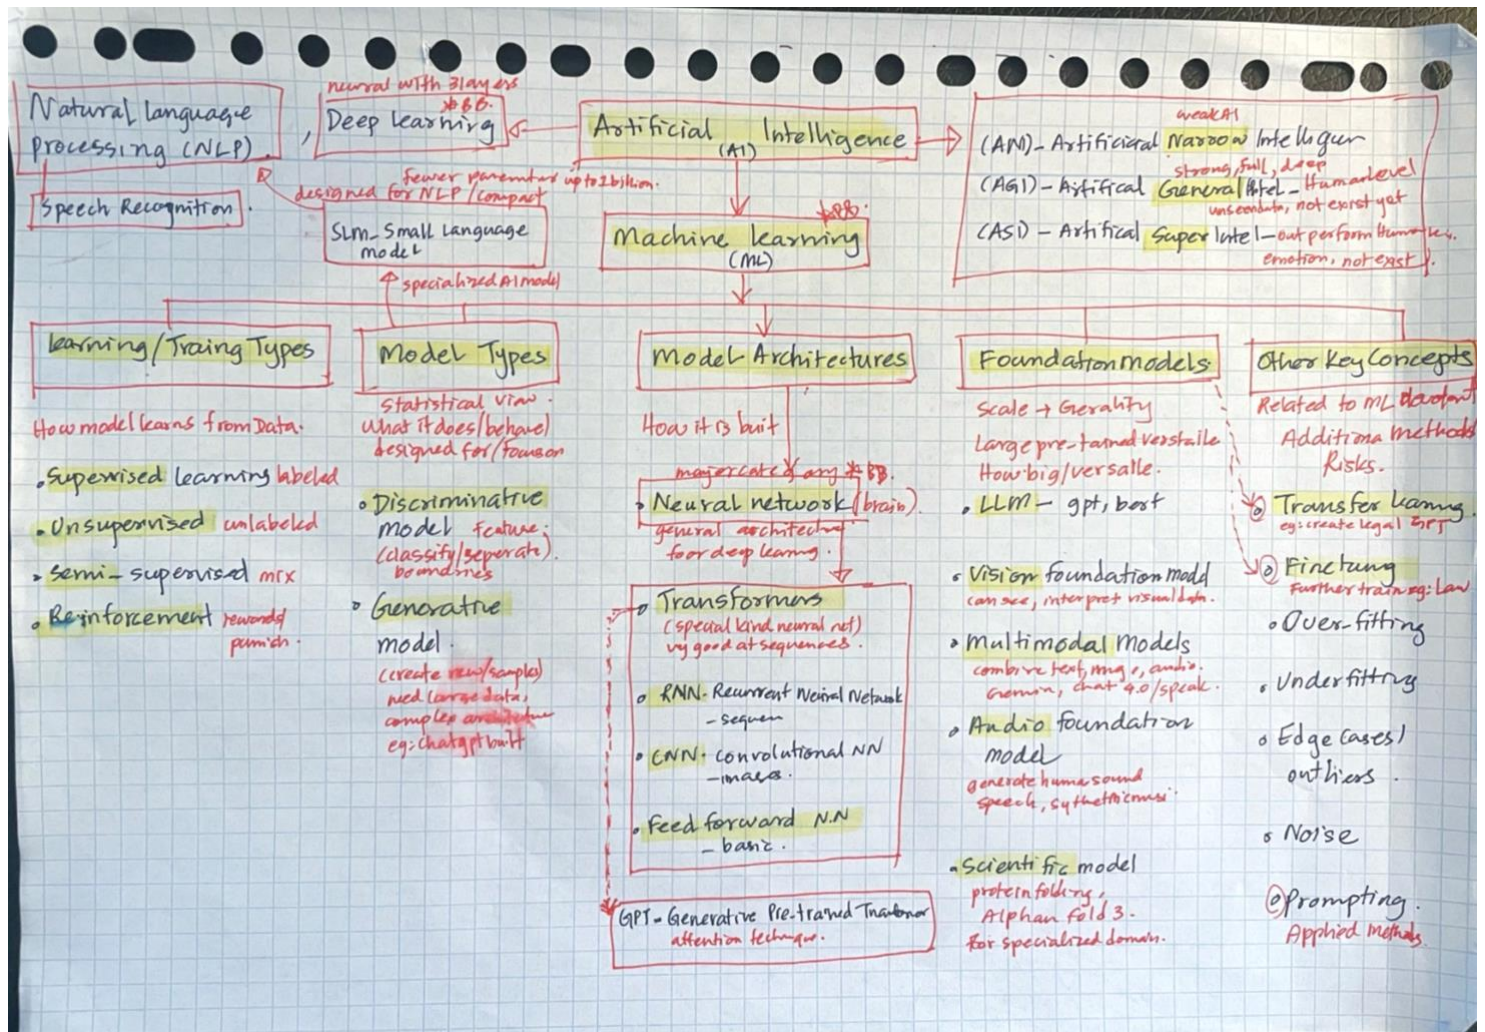 Natural language
processing (NLP).
Speech Recognition.
neural with 3layers
*BB.
, Deep learning
Artificial Intelligence
(AI)
weakAI
(ANI)- Artificical Narrow Intelligen
strong, full, deep
(AGI)- Artifical General Intel- Humanlevel
unseendata, not exist yet
(ASI)- Artifical Super Intel- outperform Human
emotion, not exist.
fewer parameter upto 2billion.
designed for NLP/compact
SLM- Small Language
model
specialized AI model
*BB.
Machine learning
(ML)
learning/Traing Types
How model learns from Data.
• Supervised learning labeled
• Unsupervised unlabeled
• Semi-supervised mix
• Reinforcement rewards/
punish.
Model Types
Statistical view.
what it does/behave)
designed for/focus on
• Discriminative
model feature.
(classify/seperate).
boundries
• Generative
model.
(create new/samples)
need large data,
complex architectue
eg: chatgpt built
Model Architectures
How it is buit
major category *BB.
• Neural network (brain).
general architectu
foor deep learning.
• Transformers
(special kind neural net)
vry good at sequences.
• RNN- Recurrent Neural Network
- sequen
• CNN. convolutional NN
- images.
• Feed forward N.N
- basic.
GPT- Generative Pre-trained
attention technique.
Foundation models
Scale → Gerality
Large pre-tained verstaile
How big/versalle.
• LLM- gpt, bert
• Vision foundation modd
can see, interpret visual data.
• Multimodal Models
combine text, img, audio.
Gemin, chat 4.0/speak.
• Audio foundation
model
generate huma sound
speech, sythetic musi.
• Scientific model
protein folding,
Alphan fold 3.
For specialized domain.
Other Key Concepts
Related to ML
Additiona Methods
Risks.
• Transfer learning.
eg: create legal GPT
• Finetung
Further train eg: Law
• Over-fitting
• Underfitting
• Edge Cases/
outliers.
• Noise
• Prompting.
Applied methods